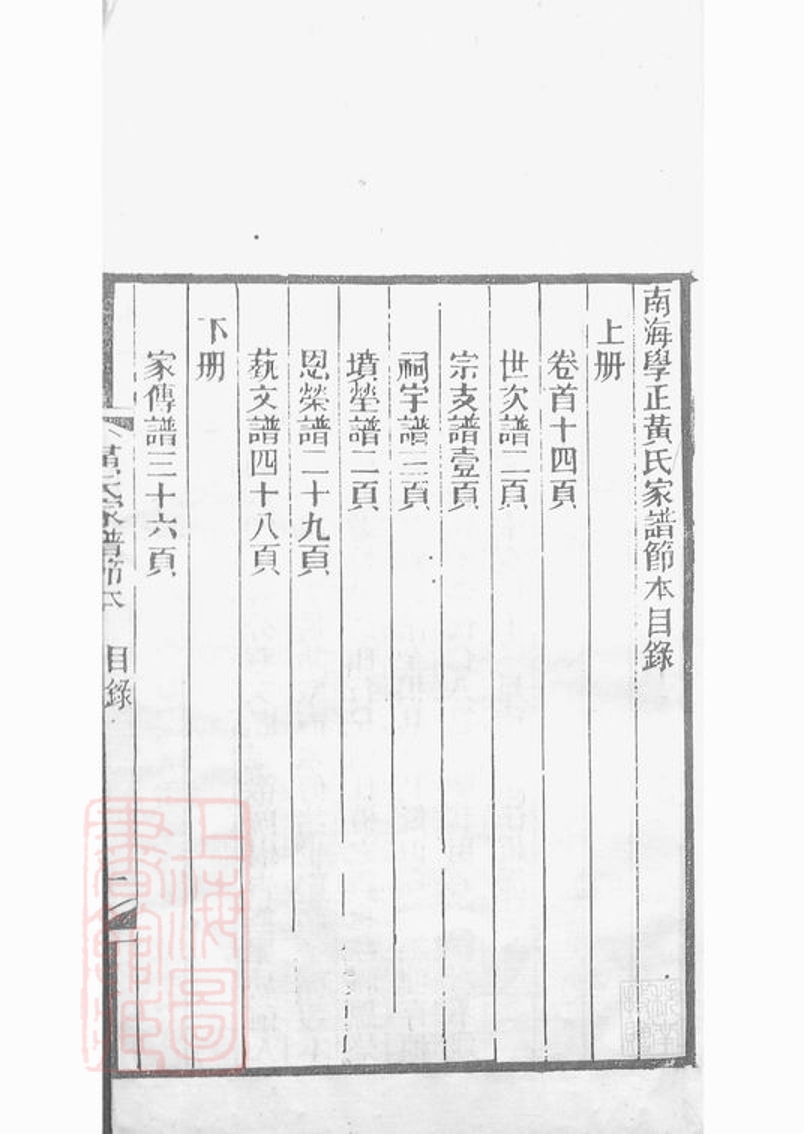 南海學正黃氏家譜節本目錄
上册
卷首十四頁
世次譜二頁
宗支譜壹頁
祠宇譜三頁
墳塋譜二頁
恩榮譜二十九頁
蓺文譜四十八頁
下册
家傳譜三十六頁
黃氏家譜節本 目錄 一
上海圖書館藏